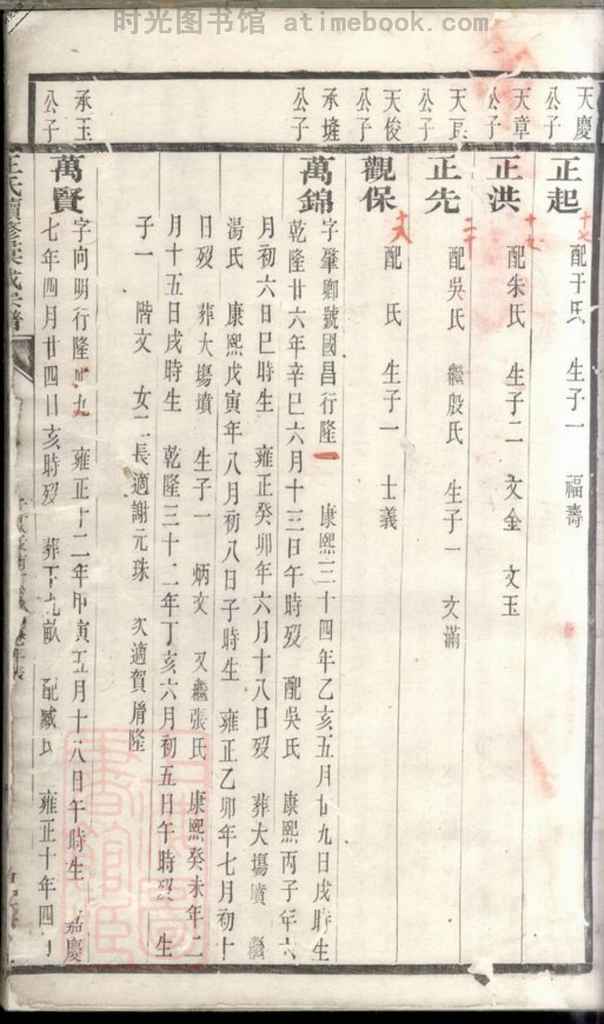 时光图书馆 - atimebook.com
天慶公子
正起
十七
配于氏 生子一 福壽
天章公子
正洪
十七
配朱氏 生子二 文金 文玉
天民公子
正先
二十
配吳氏 繼殷氏 生子一 文滿
天俊公子
觀保
十八
配 氏 生子一 士義
承塏公子
萬錦
字肇卿號國昌行隆一 康熙三十四年乙亥五月廿九日戌時生
乾隆廿六年辛巳六月十三日午時歿 配吳氏 康熙丙子年六
月初六日巳時生 雍正癸卯年六月十八日歿 葬大場墳 繼
湯氏 康熙戊寅年八月初八日子時生 雍正乙卯年七月初十
日歿 葬大場墳 生子一 炳文 又繼張氏 康熙癸未年二
月十五日戌時生 乾隆三十二年丁亥六月初五日午時歿 生
子一 階文 女二長適謝元珠 次適賀 隆
承玉公子
萬賢
字向明行隆 九 雍正十二年甲寅五月十八日午時生 嘉慶
七年四月廿四日亥時歿 葬丁九畝 配臧氏 雍正十年四月